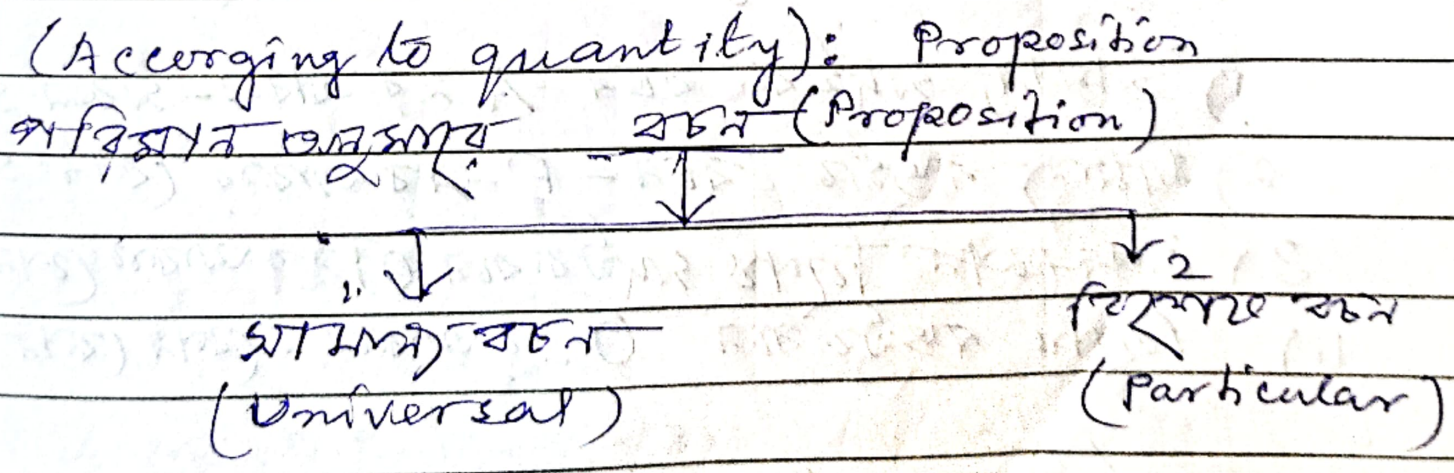 (Accorging to quantity): Proposition
পরিমান অনুসারে বচন (Proposition)
1. 2
সামান্য বচন বিশেষ বচন
(Universal) (Particular)